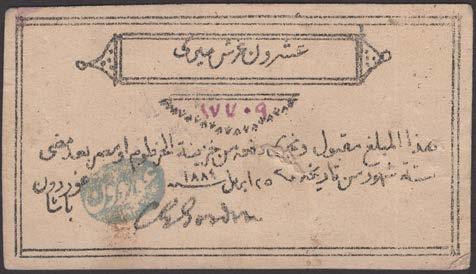 عشرون غرش ميرى
٩٧٧٠٩
هذا المبلغ مقبول ويجرى دفعه من خزينة الخرطوم او مصر بعد مضى
ستة شهور من تاريخه ٢٥ ابريل سنة ١٨٨٤
غوردون
باشا
C G Gordon